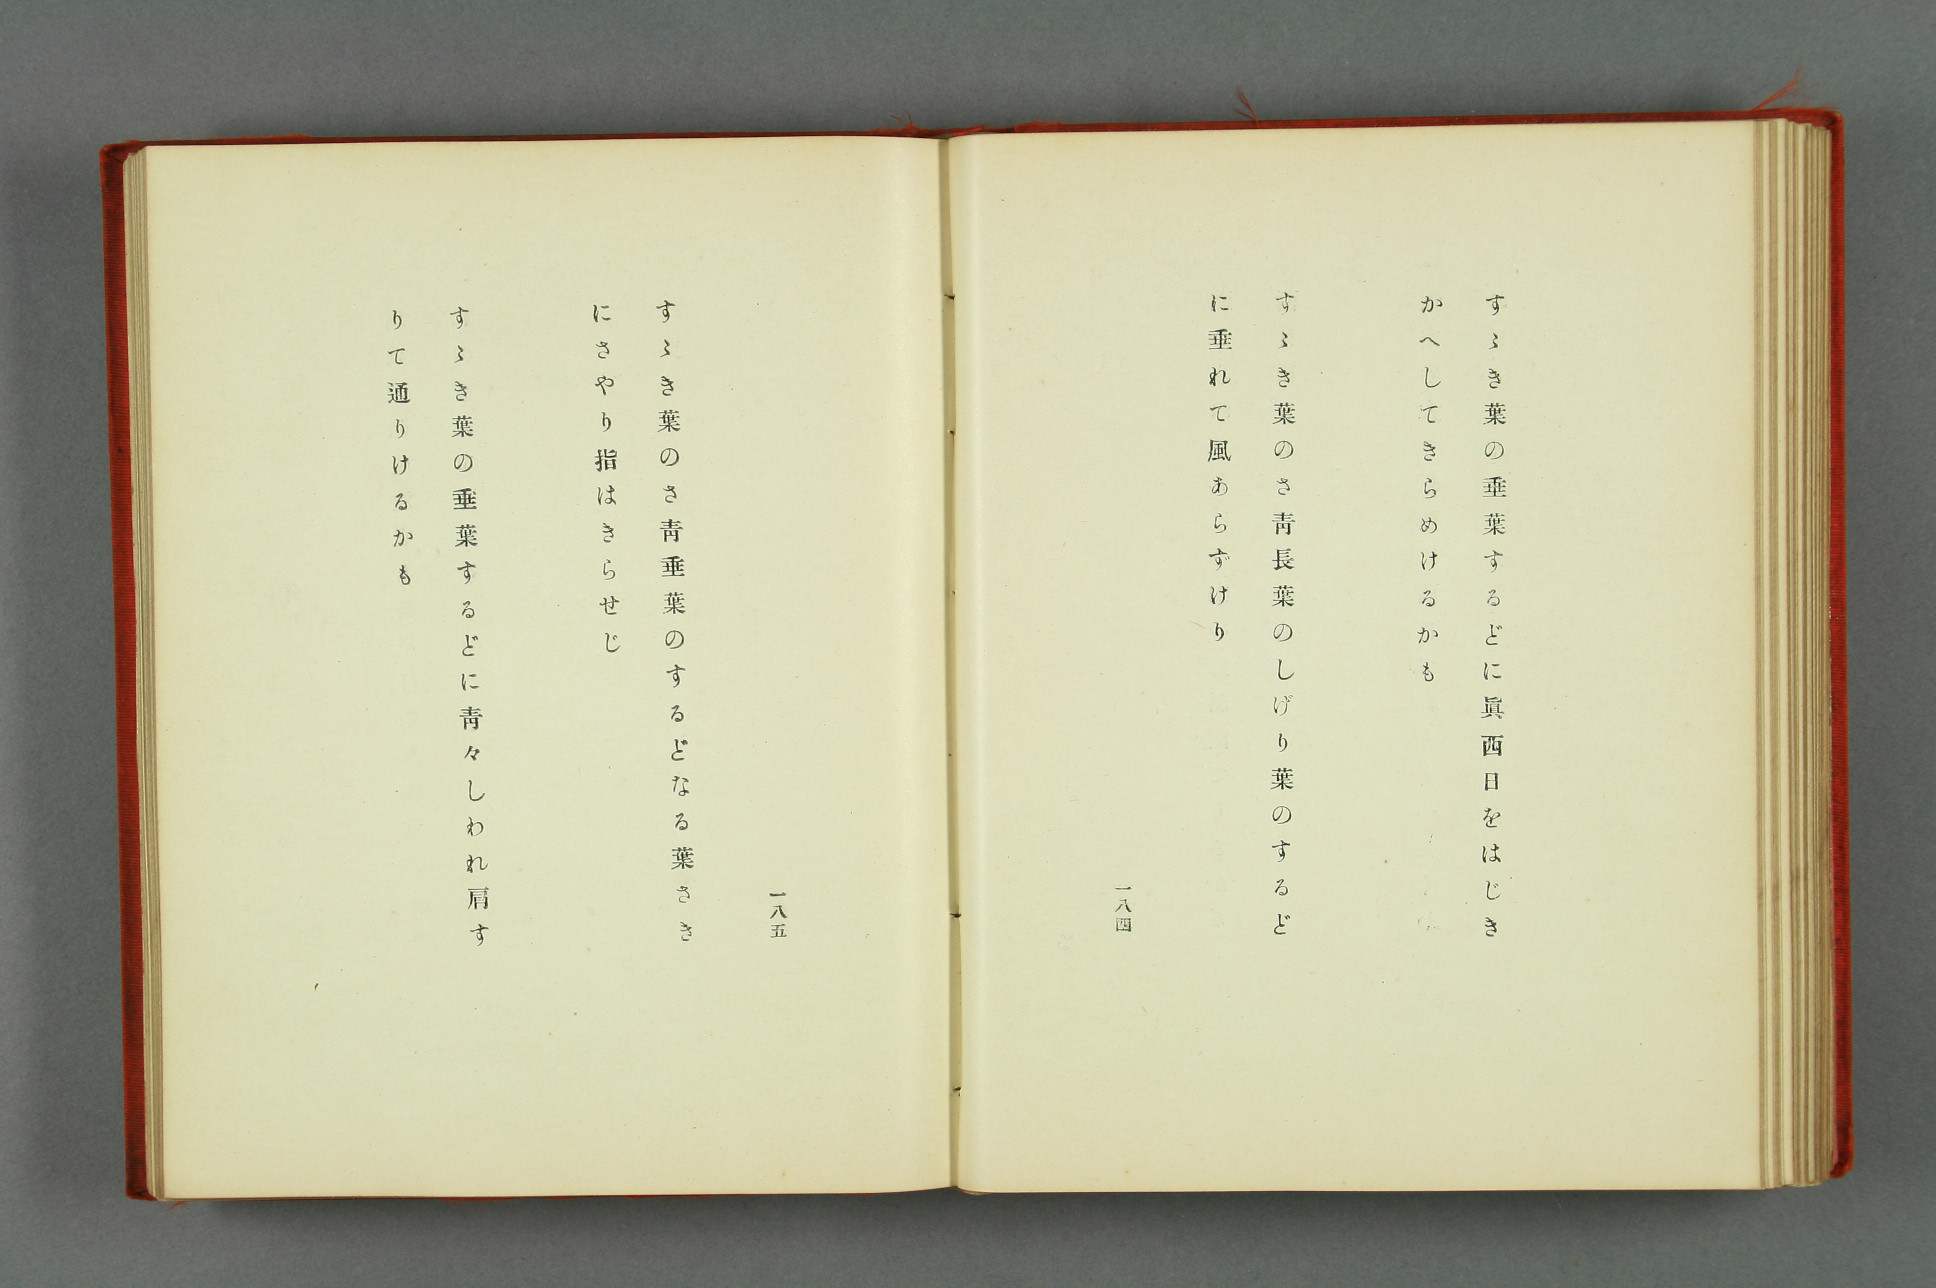 すゝき葉の垂葉するどに眞西日をはじき
かへしてきらめけるかも
すゝき葉のさ靑長葉のしげり葉のするど
に垂れて風あらずけり
一八四
一八五
すゝき葉のさ靑垂葉のするどなる葉さき
にさやり指はきらせじ
すゝき葉の垂葉するどに靑々しわれ肩す
りて通りけるかも